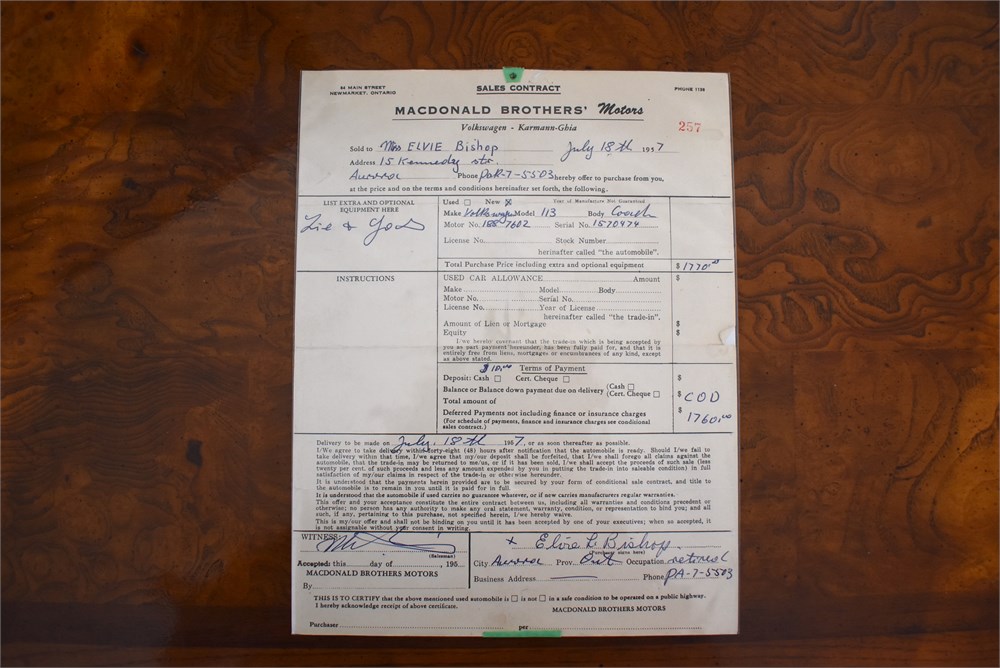 64 MAIN STREET
NEWMARKET, ONTARIO
SALES CONTRACT
PHONE 1158
MACDONALD BROTHERS' Motors
Volkswagen - Karmann-Ghia
257
Sold to Miss ELVIE Bishop July 18th 1957
Address 15 Kennedy str.
Aurora Phone PAR-7-5503 hereby offer to purchase from you,
at the price and on the terms and conditions hereinafter set forth, the following.
LIST EXTRA AND OPTIONAL
EQUIPMENT HERE
Used ☐ New ☒ Year of Manufacture Not Guaranteed
Make Volkswagen Model 113 Body Coach
Motor No. Serial No. 1570474
License No. Stock Number
hereinafter called "the automobile".
Total Purchase Price including extra and optional equipment $1770.
INSTRUCTIONS
USED CAR ALLOWANCE Amount $
Make Model Body
Motor No. Serial No.
License No. Year of License
hereinafter called "the trade-in".
Amount of Lien or Mortgage $
Equity $
I/we hereby covenant that the trade-in which is being accepted by
you as part payment hereunder, has been fully paid for, and that it is
entirely free from liens, mortgages or encumbrances of any kind, except
as above stated.
$10.00 Terms of Payment
Deposit: Cash ☐ Cert. Cheque ☐ $
Balance or Balance down payment due on delivery (Cash ☐
(Cert. Cheque ☐ $ COD
Total amount of
Deferred Payments not including finance or insurance charges $ 1760.00
(For schedule of payments, finance and insurance charges see conditional
sales contract.)
Delivery to be made on July. 18th 1957, or as soon thereafter as possible.
I/We agree to take delivery within forty-eight (48) hours after notification that the automobile is ready. Should I/we fail to
take delivery within that time, I/we agree that my/our deposit shall be forfeited, that I/we shall forego all claims against the
automobile, that the trade-in may be returned to me/us, or if it has been sold, I/we shall accept the proceeds of such sale (less
twenty per cent. of such proceeds and less any amount expended by you in putting the trade-in into saleable condition) in full
satisfaction of my/our claims in respect of the trade-in or otherwise in this transaction.
It is understood that the payments herein provided are to be secured by your form of conditional sale contract, and title to
the automobile is to remain in you until it is paid for in full.
It is understood that the automobile if used carries no guarantee whatever, or if new carries manufacturers regular warranties.
This offer and your acceptance constitute the entire contract between us, including all warranties and conditions precedent or
otherwise; no person has any authority to make any oral statement, warranty, condition, or representation to bind you; and all
such, if any, pertaining to this purchase, not specified herein, I/we hereby waive.
This is my/our offer and shall not be binding on you until it has been accepted by one of your executives; when so accepted, it
is not assignable without your consent in writing.
WITNESS:
(Salesman)
x Elvie L. Bishop.
(Purchaser signs here)
Accepted: this day of , 195
City Aurora Prov. Ont Occupation retired
MACDONALD BROTHERS MOTORS
Business Address Phone PA-7-5503
By
THIS IS TO CERTIFY that the above mentioned used automobile is ☐ is not ☐ in a safe condition to be operated on a public highway.
I hereby acknowledge receipt of above certificate.
MACDONALD BROTHERS MOTORS
Purchaser per